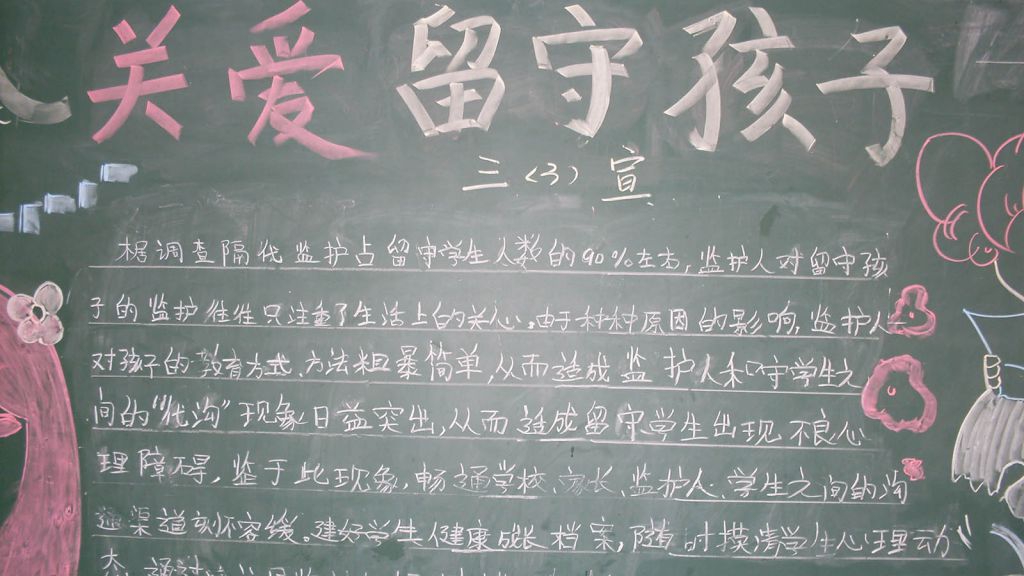 关爱留守孩子
三(3)宣
据调查隔代监护占留守学生人数的90%左右,监护人对留守孩
子的监护往往只注重了生活上的关心。由于种种原因的影响,监护人
对孩子的教育方式、方法粗暴简单,从而造成监护人和守学生之
间的"代沟"现象日益突出,从而造成留守学生出现不良心
理障碍。鉴于此现象,畅通学校、家长、监护人、学生之间的沟
通渠道刻不容缓。建好学生健康成长档案,随时摸清学生心理动
态,通过